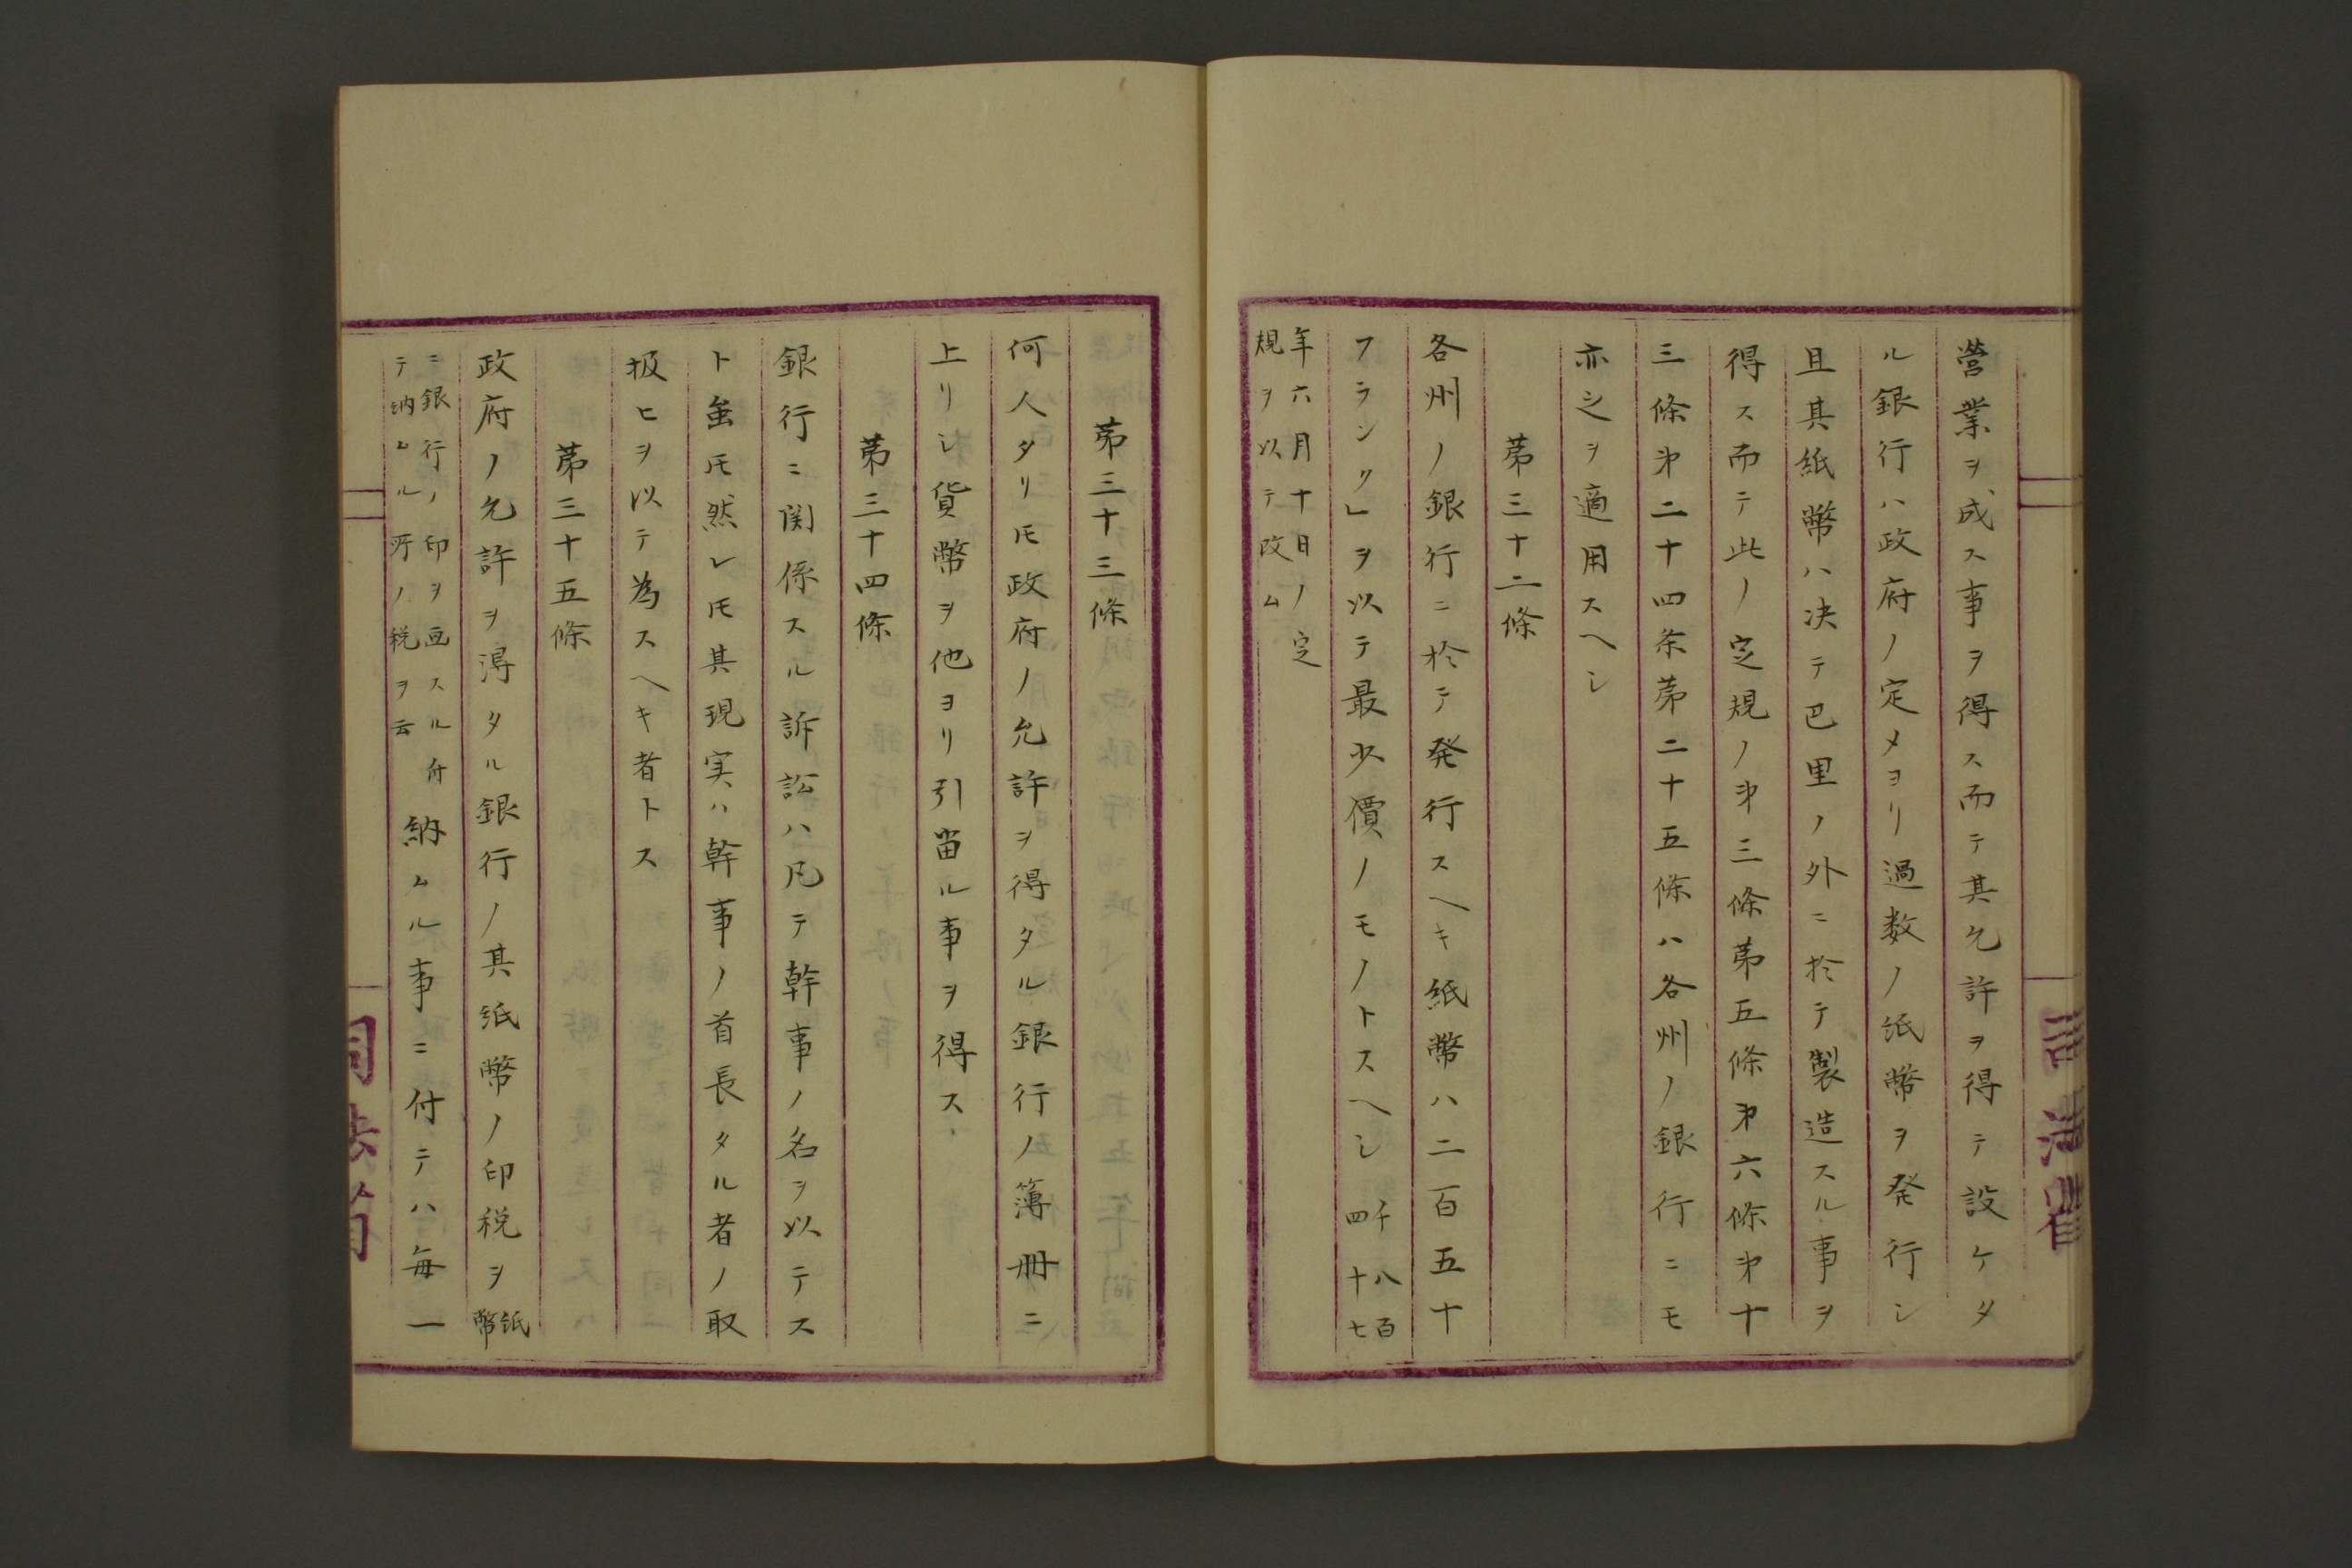 営業ヲ成ス事ヲ得ス而テ其允許ヲ得テ設ケタ
ル銀行ハ政府ノ定メヨリ過数ノ紙幣ヲ発行シ
且其紙幣ハ决テ巴里ノ外ニ於テ製造スル事ヲ
得ス而テ此ノ定規ノ第三條第五條第六條第十
三條第二十四条第二十五條ハ各州ノ銀行ニモ
亦之ヲ適用スヘシ
第三十二條
各州ノ銀行ニ於テ発行スヘキ紙幣ハ二百五十
フランク」ヲ以テ最少價ノモノトスヘシ千八百
四十七
年六月十日ノ定
規ヲ以テ改ム
第三十三條
何人タリ𪜈政府ノ允許ヲ得タル銀行ノ簿冊ニ
上リシ貨幣ヲ他ヨリ引畄ル事ヲ得ス
第三十四條
銀行ニ関係スル訴訟ハ凡テ幹事ノ名ヲ以テス
ト虽𪜈然レ𪜈其現実ハ幹事ノ首長タル者ノ取
扱ヒヲ以テ為スヘキ者トス
第三十五條
政府ノ允許ヲ淂タル銀行ノ其紙幣ノ印税ヲ紙
幣
ニ銀行ノ印ヲ画スル付
テ納ムル所ノ税ヲ云
納ムル事ニ付テハ毎一
司法省